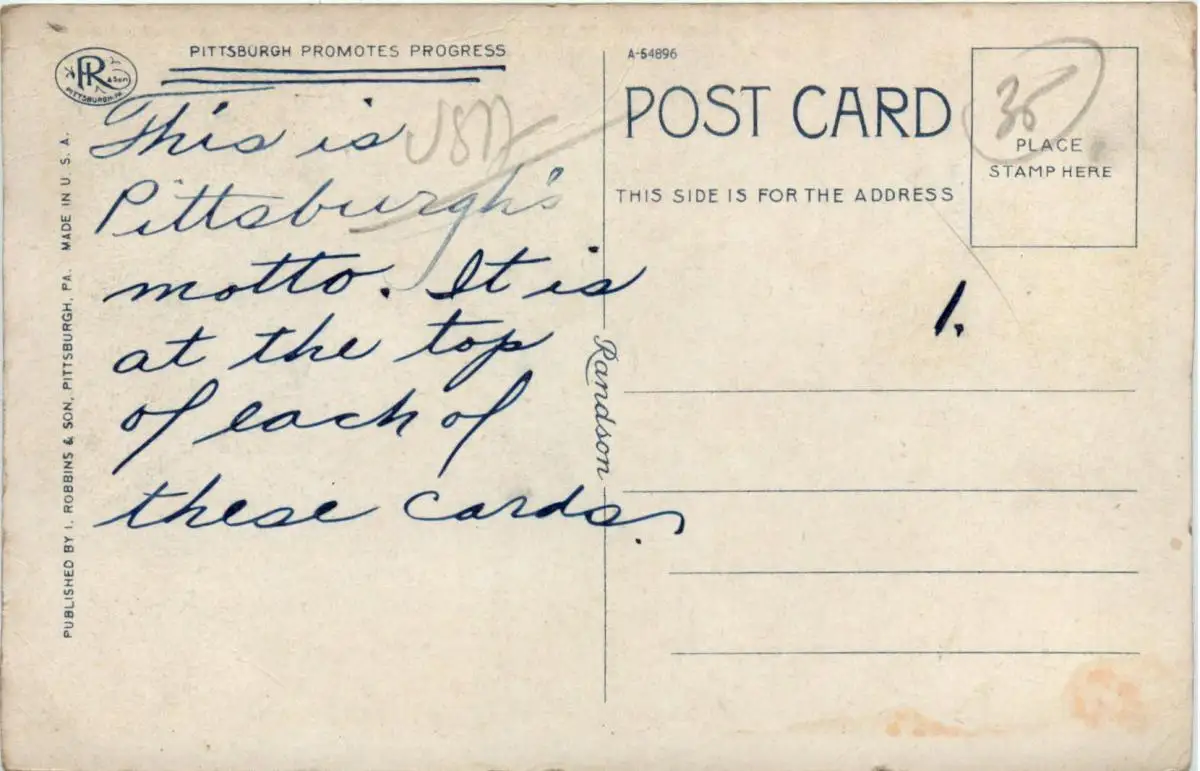 PITTSBURGH PROMOTES PROGRESS
PR
& Son
PITTSBURGH, PA.
This is
Pittsburgh's
motto. It is
at the top
of each of
these cards.
PUBLISHED BY I. ROBBINS & SON, PITTSBURGH, PA. MADE IN U. S. A.
Randson
A-54896
POST CARD
THIS SIDE IS FOR THE ADDRESS
35
PLACE
STAMP HERE
1.